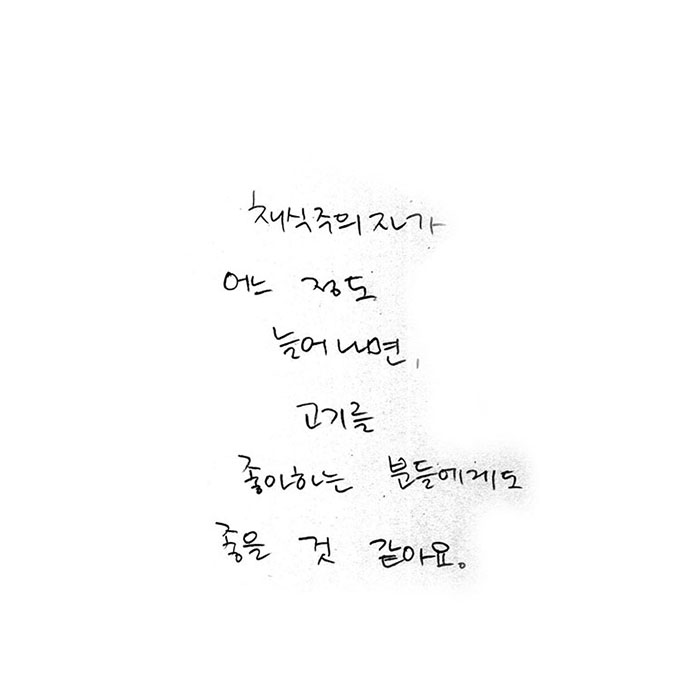 채식주의자가
어느 정도
늘어나면,
고기를
좋아하는 분들에게도
좋을 것 같아요.